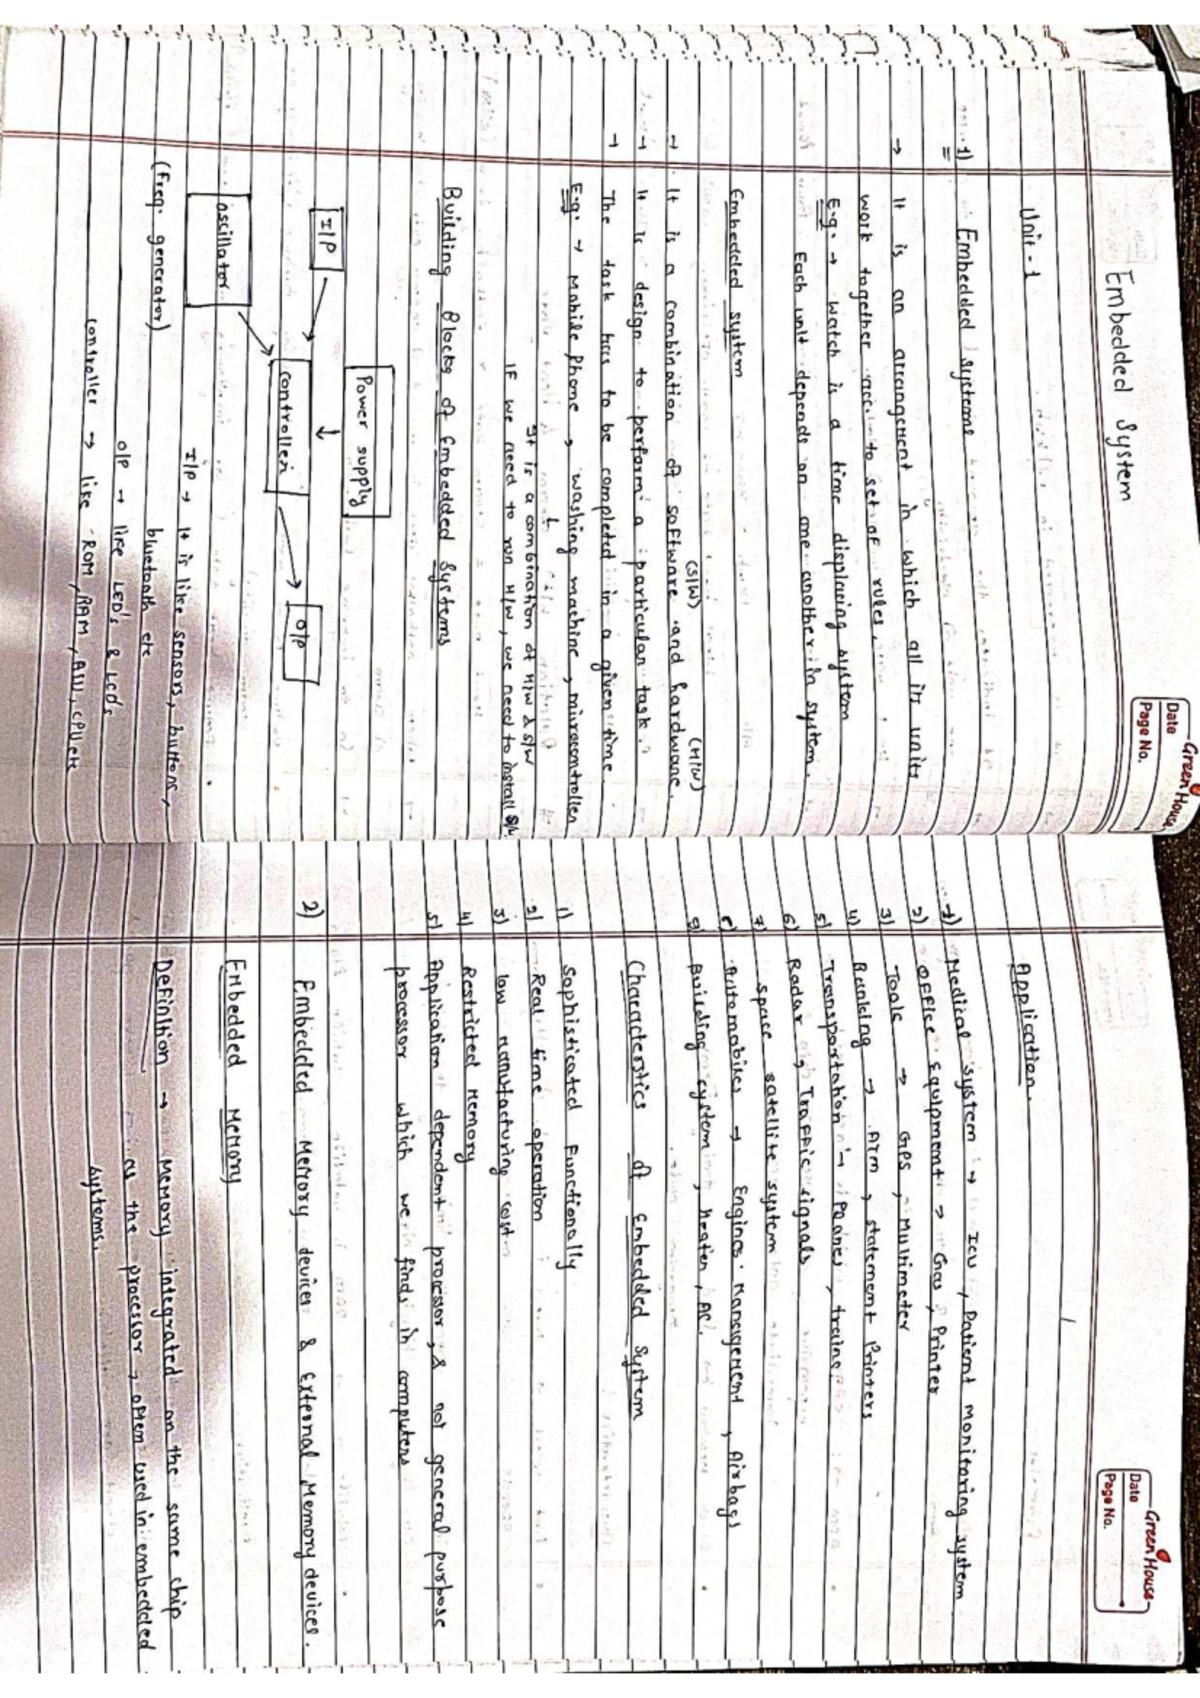 Green House
Date
Page No.
Embedded System
Unit - 1
1) Embedded Systems
→ It is an arrangement in which all its units
work together acc. to set of rules.
E.g. → watch is a time displacing system
Each unit depends on one another in system.
Embedded system
(S/W) (H/W)
→ It is a combination of software and hardware.
→ It is design to perform a particular task.
→ The task has to be completed in a given time
E.g. → Mobile phone, washing machine, microcontroller
↓
It is a combination of H/W & S/W
IF we need to run H/W, we need to install S/W
Building Blocks of Embedded Systems
Power supply
I/P
Controller
O/P
oscillator
(Freq. generator)
I/P → It is like sensors, buttons,
bluetooth etc
O/P → like LED's & LCDs
Controller → like ROM, RAM, ALU, CPU etc
Green House
Date
Page No.
Application
1) Medical system → ICU, Patient monitoring system
2) Office Equipment → Gas, Printer
3) Tools → GPS, Multimeter
4) Banking → ATM, statement Printers
5) Transportation → Planes, trains
6) Radar, Traffic signals
7) space satellite system
8) Automobiles → Engines Management, Airbags
9) Building system, heater, AC.
Characterstics of Embedded System
1) Sophisticated Functionally
2) Real time operation
3) low manufacturing cost
4) Restricted Memory
5) Application dependent processor, & not general purpose
processor which we finds in computers
2) Embedded Memory devices & External Memory devices.
Embedded Memory
Definition → Memory integrated on the same chip
as the processor, often used in embedded
systems.